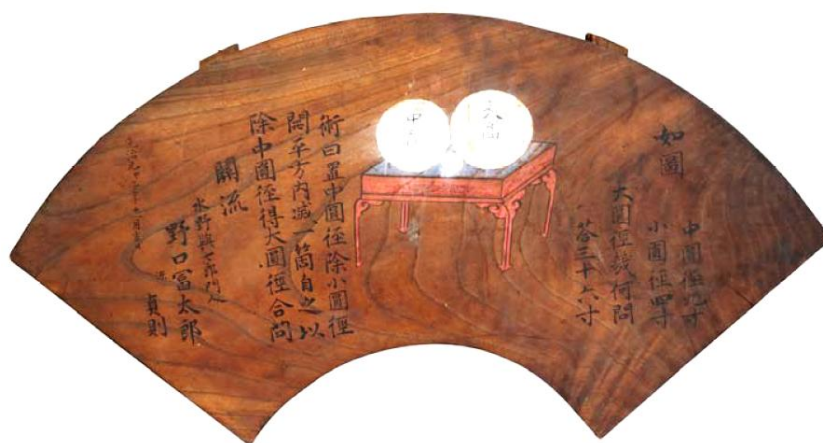 如圖
中圓徑九寸
小圓徑四寸
大圓徑幾何問
荅三十六寸
大圓
中圓
術曰置中圓徑除小圓徑
開平方内減一箇自之以
除中圓徑得大圓徑合問
關流
水野門人
野口富太郎
貞則